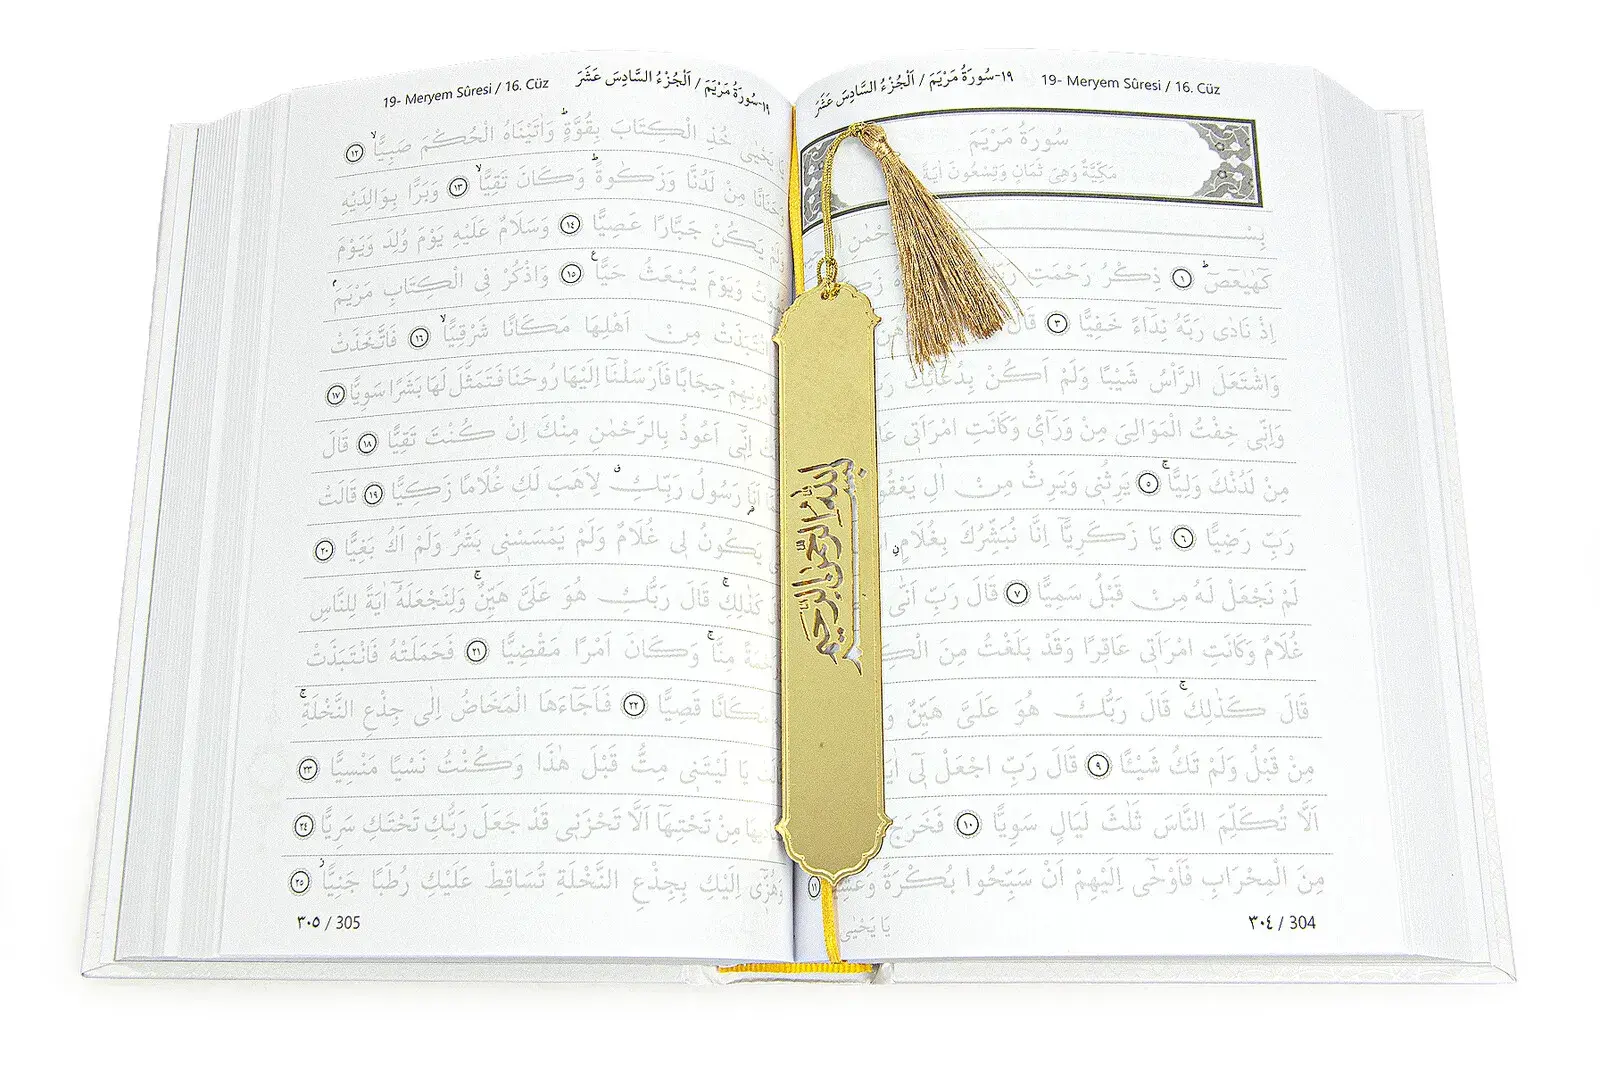 ١٩-سُورَةُ مَرْيَمَ / اَلْجُزْءُ السَّادِسَ عَشَرَ 19- Meryem Sûresi / 16. Cüz
سُورَةُ مَرْيَمَ
مَكِّيَّةٌ وَهِيَ ثَمَانٍ وَتِسْعُونَ اٰيَةً
كٓهٰيٰعٓصٓ ١ ذِكْرُ رَحْمَتِ
اِذْ نَادٰى رَبَّهُ نِدَٓاءً خَفِيًّا ٣ قَالَ
وَاشْتَعَلَ الرَّأْسُ شَيْبًا وَلَمْ اَكُنْ بِدُعَٓائِكَ
وَاِنّ۪ي خِفْتُ الْمَوَالِيَ مِنْ وَرَٓاء۪ي وَكَانَتِ امْرَاَت۪ي
مِنْ لَدُنْكَ وَلِيًّا ٥ يَرِثُن۪ي وَيَرِثُ مِنْ اٰلِ
رَبِّ رَضِيًّا ٦ يَا زَكَرِيَّٓا اِنَّا نُبَشِّرُكَ بِغُلَامٍ
لَمْ نَجْعَلْ لَهُ مِنْ قَبْلُ سَمِيًّا ٧ قَالَ رَبِّ اَنّٰى
غُلَامٌ وَكَانَتِ امْرَاَت۪ي عَاقِرًا وَقَدْ بَلَغْتُ مِنَ
قَالَ كَذٰلِكَ قَالَ رَبُّكَ هُوَ عَلَيَّ هَيِّنٌ
مِنْ قَبْلُ وَلَمْ تَكُ شَيْـًٔا ٩ قَالَ رَبِّ اجْعَلْ ل۪ٓي
اَلَّا تُكَلِّمَ النَّاسَ ثَلٰثَ لَيَالٍ سَوِيًّا ١٠ فَخَرَجَ
مِنَ الْمِحْرَابِ فَاَوْحٰٓى اِلَيْهِمْ اَنْ سَبِّحُوا بُكْرَةً وَعَشِيًّا ١١
يَا يَحْيٰى
٣٠٤ / 304
بسم الله الرحمن الرحيم
19- Meryem Sûresi / 16. Cüz ١٩-سُورَةُ مَرْيَمَ / اَلْجُزْءُ السَّادِسَ عَشَرَ
يَا يَحْيٰى خُذِ الْكِتَابَ بِقُوَّةٍ وَاٰتَيْنَاهُ الْحُكْمَ صَبِيًّا ١٢
وَحَنَانًا مِنْ لَدُنَّا وَزَكٰوةً وَكَانَ تَقِيًّا ١٣ وَبَرًّا بِوَالِدَيْهِ
يَكُنْ جَبَّارًا عَصِيًّا ١٤ وَسَلَامٌ عَلَيْهِ يَوْمَ وُلِدَ وَيَوْمَ
يَمُوتُ وَيَوْمَ يُبْعَثُ حَيًّا ١٥ وَاذْكُرْ فِي الْكِتَابِ مَرْيَمَ
انْتَبَذَتْ مِنْ اَهْلِهَا مَكَانًا شَرْقِيًّا ١٦ فَاتَّخَذَتْ
دُونِهِمْ حِجَابًا فَاَرْسَلْنَٓا اِلَيْهَا رُوحَنَا فَتَمَثَّلَ لَهَا بَشَرًا سَوِيًّا ١٧
اِنّ۪ٓي اَعُوذُ بِالرَّحْمٰنِ مِنْكَ اِنْ كُنْتَ تَقِيًّا ١٨ قَالَ
اَنَا رَسُولُ رَبِّكِ لِاَهَبَ لَكِ غُلَامًا زَكِيًّا ١٩ قَالَتْ
يَكُونُ ل۪ي غُلَامٌ وَلَمْ يَمْسَسْن۪ي بَشَرٌ وَلَمْ اَكُ بَغِيًّا ٢٠
كَذٰلِكِ قَالَ رَبُّكِ هُوَ عَلَيَّ هَيِّنٌ وَلِنَجْعَلَهُٓ اٰيَةً لِلنَّاسِ
مِنَّا وَكَانَ اَمْرًا مَقْضِيًّا ٢١ فَحَمَلَتْهُ فَانْتَبَذَتْ
مَكَانًا قَصِيًّا ٢٢ فَاَجَٓاءَهَا الْمَخَاضُ اِلٰى جِذْعِ النَّخْلَةِ
يَا لَيْتَن۪ي مِتُّ قَبْلَ هٰذَا وَكُنْتُ نَسْيًا مَنْسِيًّا ٢٣
مِنْ تَحْتِهَٓا اَلَّا تَحْزَن۪ي قَدْ جَعَلَ رَبُّكِ تَحْتَكِ سَرِيًّا ٢٤
وَهُزّ۪ٓي اِلَيْكِ بِجِذْعِ النَّخْلَةِ تُسَاقِطْ عَلَيْكِ رُطَبًا جَنِيًّا ٢٥
٣٠٥ / 305